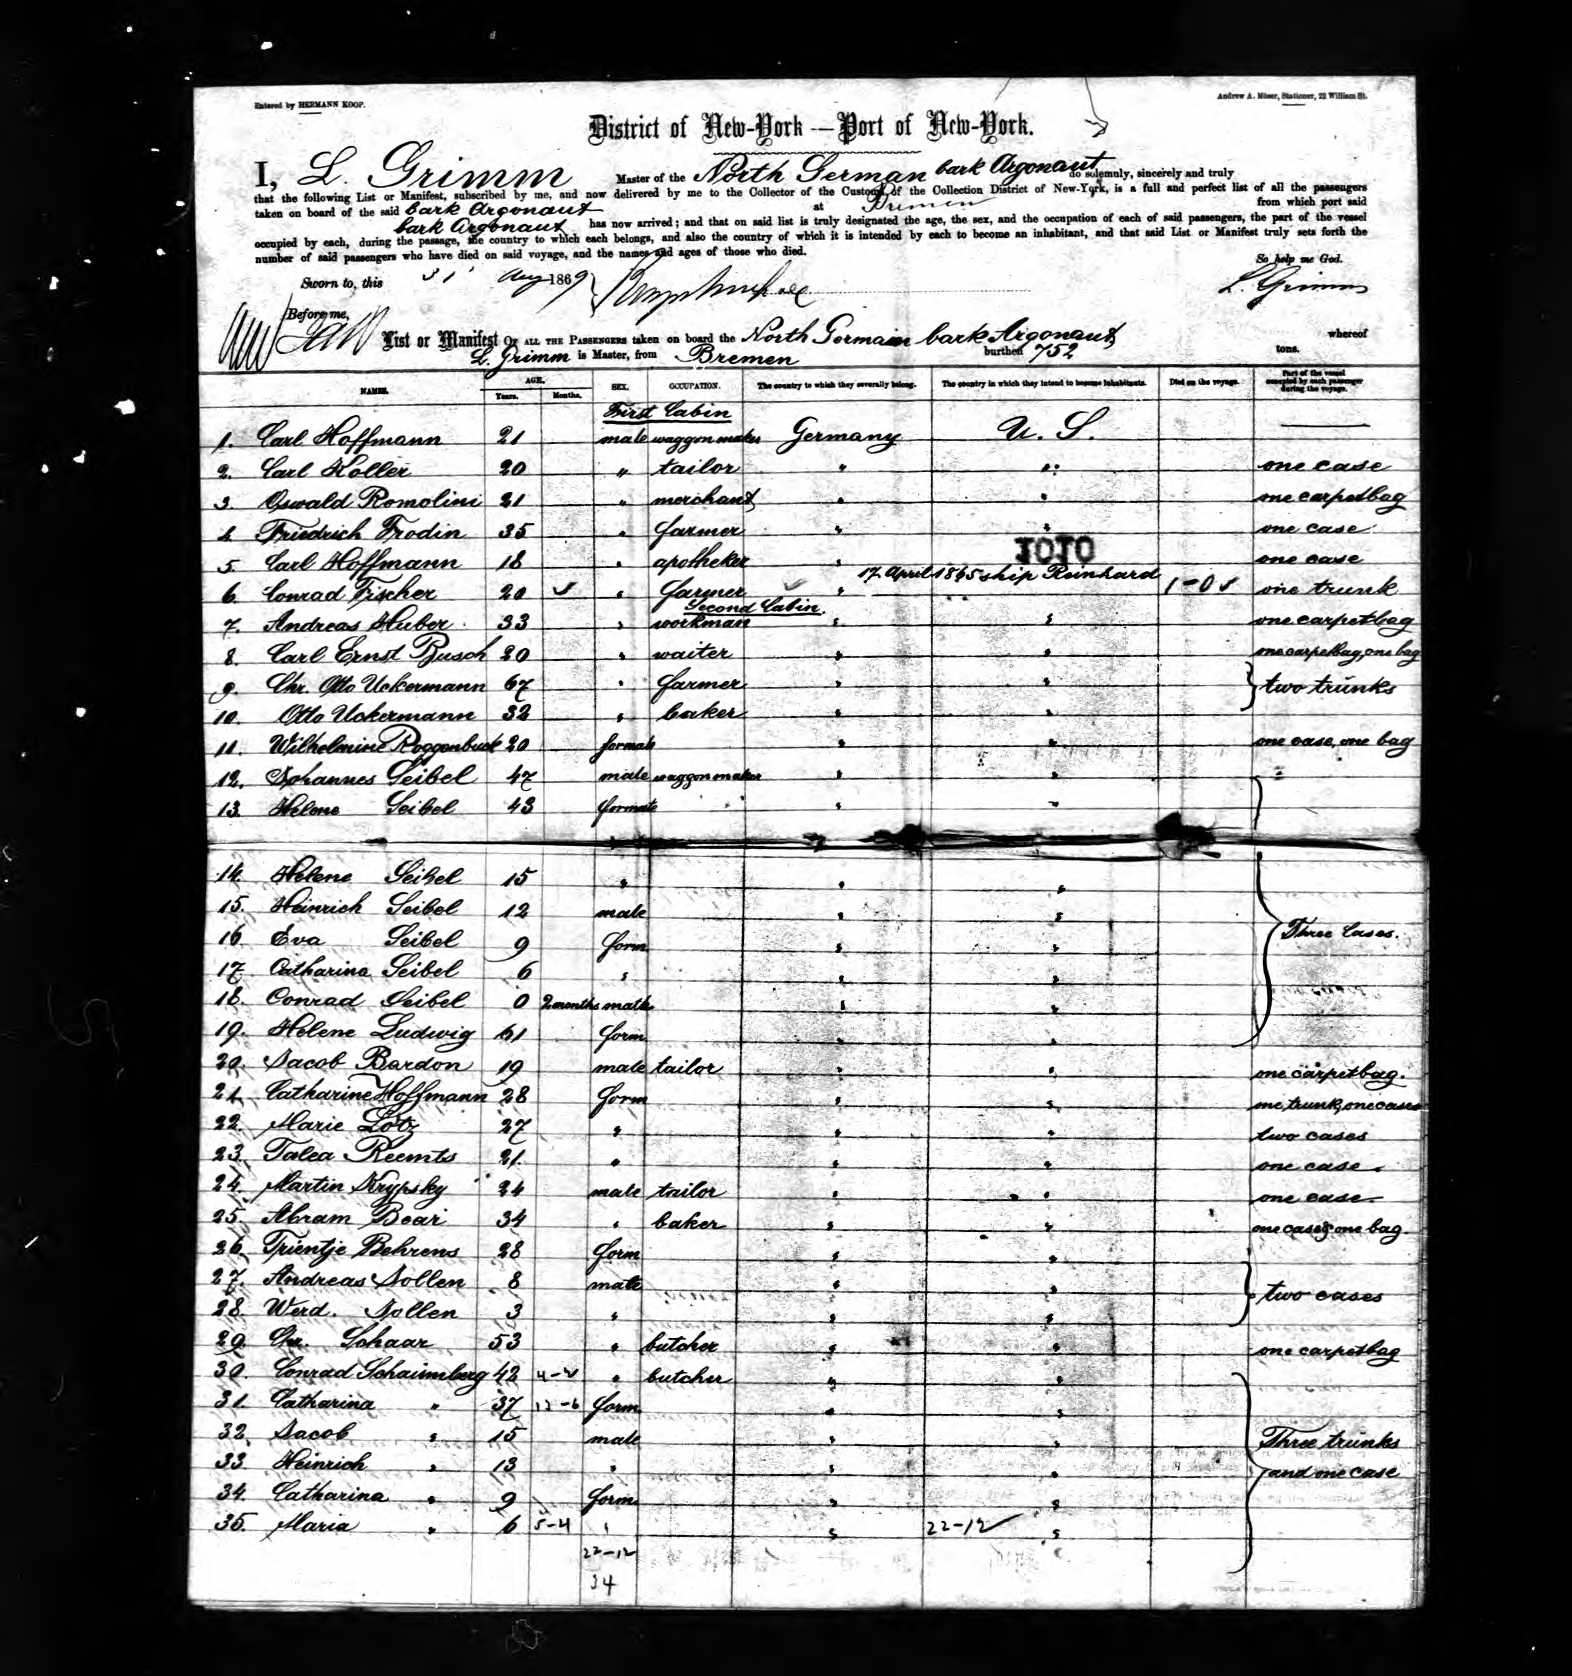 Entered by HERMANN KOOP.
Andrew A. Moser, Stationer, 22 William St.
District of New-York — Port of New-York.
I, L. Grimm Master of the North German bark Argonaut do solemnly, sincerely and truly
that the following List or Manifest, subscribed by me, and now delivered by me to the Collector of the Customs of the Collection District of New-York, is a full and perfect list of all the passengers
taken on board of the said bark Argonaut at Bremen from which port said
bark Argonaut has now arrived; and that on said list is truly designated the age, the sex, and the occupation of each of said passengers, the part of the vessel
occupied by each, during the passage, the country to which each belongs, and also the country of which it is intended by each to become an inhabitant, and that said List or Manifest truly sets forth the
number of said passengers who have died on said voyage, and the names and ages of those who died.
So help me God.
Sworn to, this 31 Aug 1869
L. Grimm
Before me,
List or Manifest OF ALL THE PASSENGERS taken on board the North German bark Argonaut, whereof
L. Grimm is Master, from Bremen burthen 752 tons.
NAMES. AGE. Years. Months. SEX. OCCUPATION. The country to which they severally belong. The country in which they intend to become inhabitants. Died on the voyage. Part of the vessel occupied by each passenger during the voyage.
First Cabin
1. Carl Hoffmann 21 male waggon maker Germany U. S.
2. Carl Koller 20 " tailor " " one case
3. Oswald Romolini 21 " merchant " " one carpetbag
4. Friedrich Frodin 35 " farmer " " one case
5. Carl Hoffmann 18 " apotheker " JOJO one case
17 April 1865 ship Reinhard
6. Conrad Fischer 20 " farmer " " one trunk
Second Cabin
7. Andreas Huber 33 " workman " " one carpetbag
8. Carl Ernst Busch 20 " waiter " " one carpetbag, one bag
9. Chr. Otto Uckermann 67 " farmer " " two trunks
10. Otto Uckermann 32 " baker " "
11. Wilhelmine Roggenbuck 20 female " " one case, one bag
12. Johannes Seibel 47 male waggon maker " "
13. Helene Seibel 43 female " "
14. Helene Seibel 15 " " "
15. Heinrich Seibel 12 male " "
16. Eva Seibel 9 fem " " Three Cases.
17. Catharina Seibel 6 " " "
18. Conrad Seibel 0 2 months male " "
19. Helene Ludwig 61 fem " "
20. Jacob Bardon 19 male tailor " " one carpetbag.
21. Catharine Hoffmann 28 fem " " one trunk, one cases
22. Marie Lotz 27 " " " two cases
23. Talea Reemts 21 " " " one case
24. Martin Krypsky 24 male tailor " " one case
25. Abram Bear 34 " baker " " one case & one bag
26. Trientje Behrens 28 fem " "
27. Andreas Nollen 8 male " " two cases
28. Werd. Nollen 3 " " "
29. Chr. Schaar 53 " butcher " " one carpetbag
30. Conrad Schaumberg 42 " butcher " "
31. Catharina " 37 fem " "
32. Jacob " 15 male " " Three trunks
33. Heinrich " 13 " " " and one case
34. Catharina " 9 fem " "
35. Maria " 6 5-4 " " 22-12 "
22-12
34